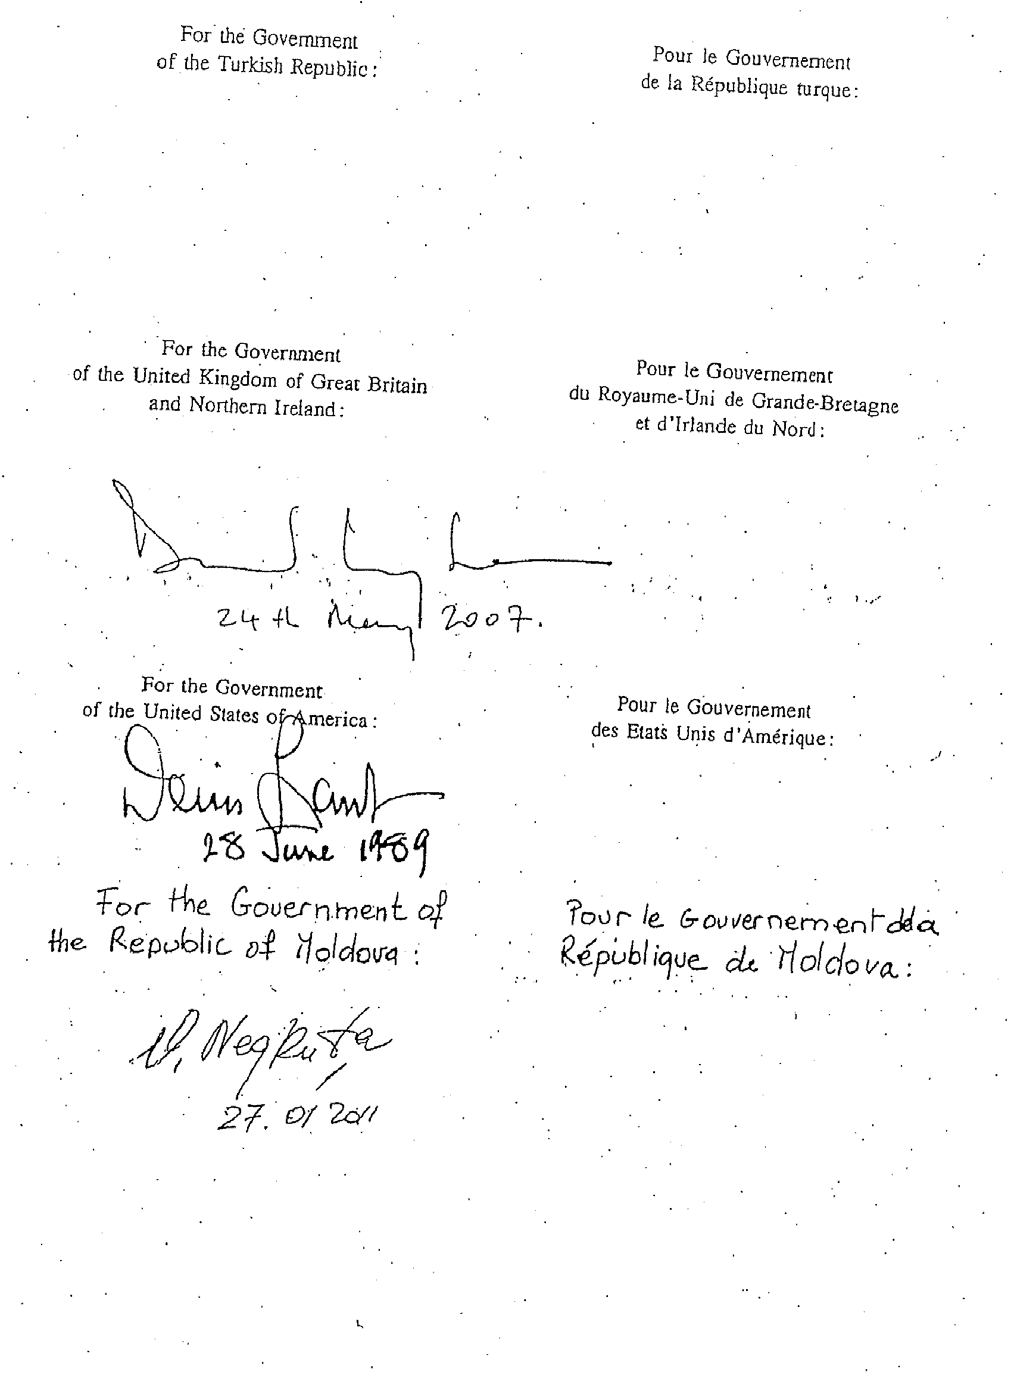 For the Government
of the Turkish Republic:
Pour le Gouvernement
de la République turque:
For the Government
of the United Kingdom of Great Britain
and Northern Ireland:
Pour le Gouvernement
du Royaume-Uni de Grande-Bretagne
et d'Irlande du Nord:
24th May 2007.
For the Government
of the United States of America:
Pour le Gouvernement
des Etats Unis d'Amérique:
Denis
28 June 1989
For the Government of
the Republic of Moldova:
Pour le Gouvernement de la
République de Moldova:
V. Negruța
27.01 2011